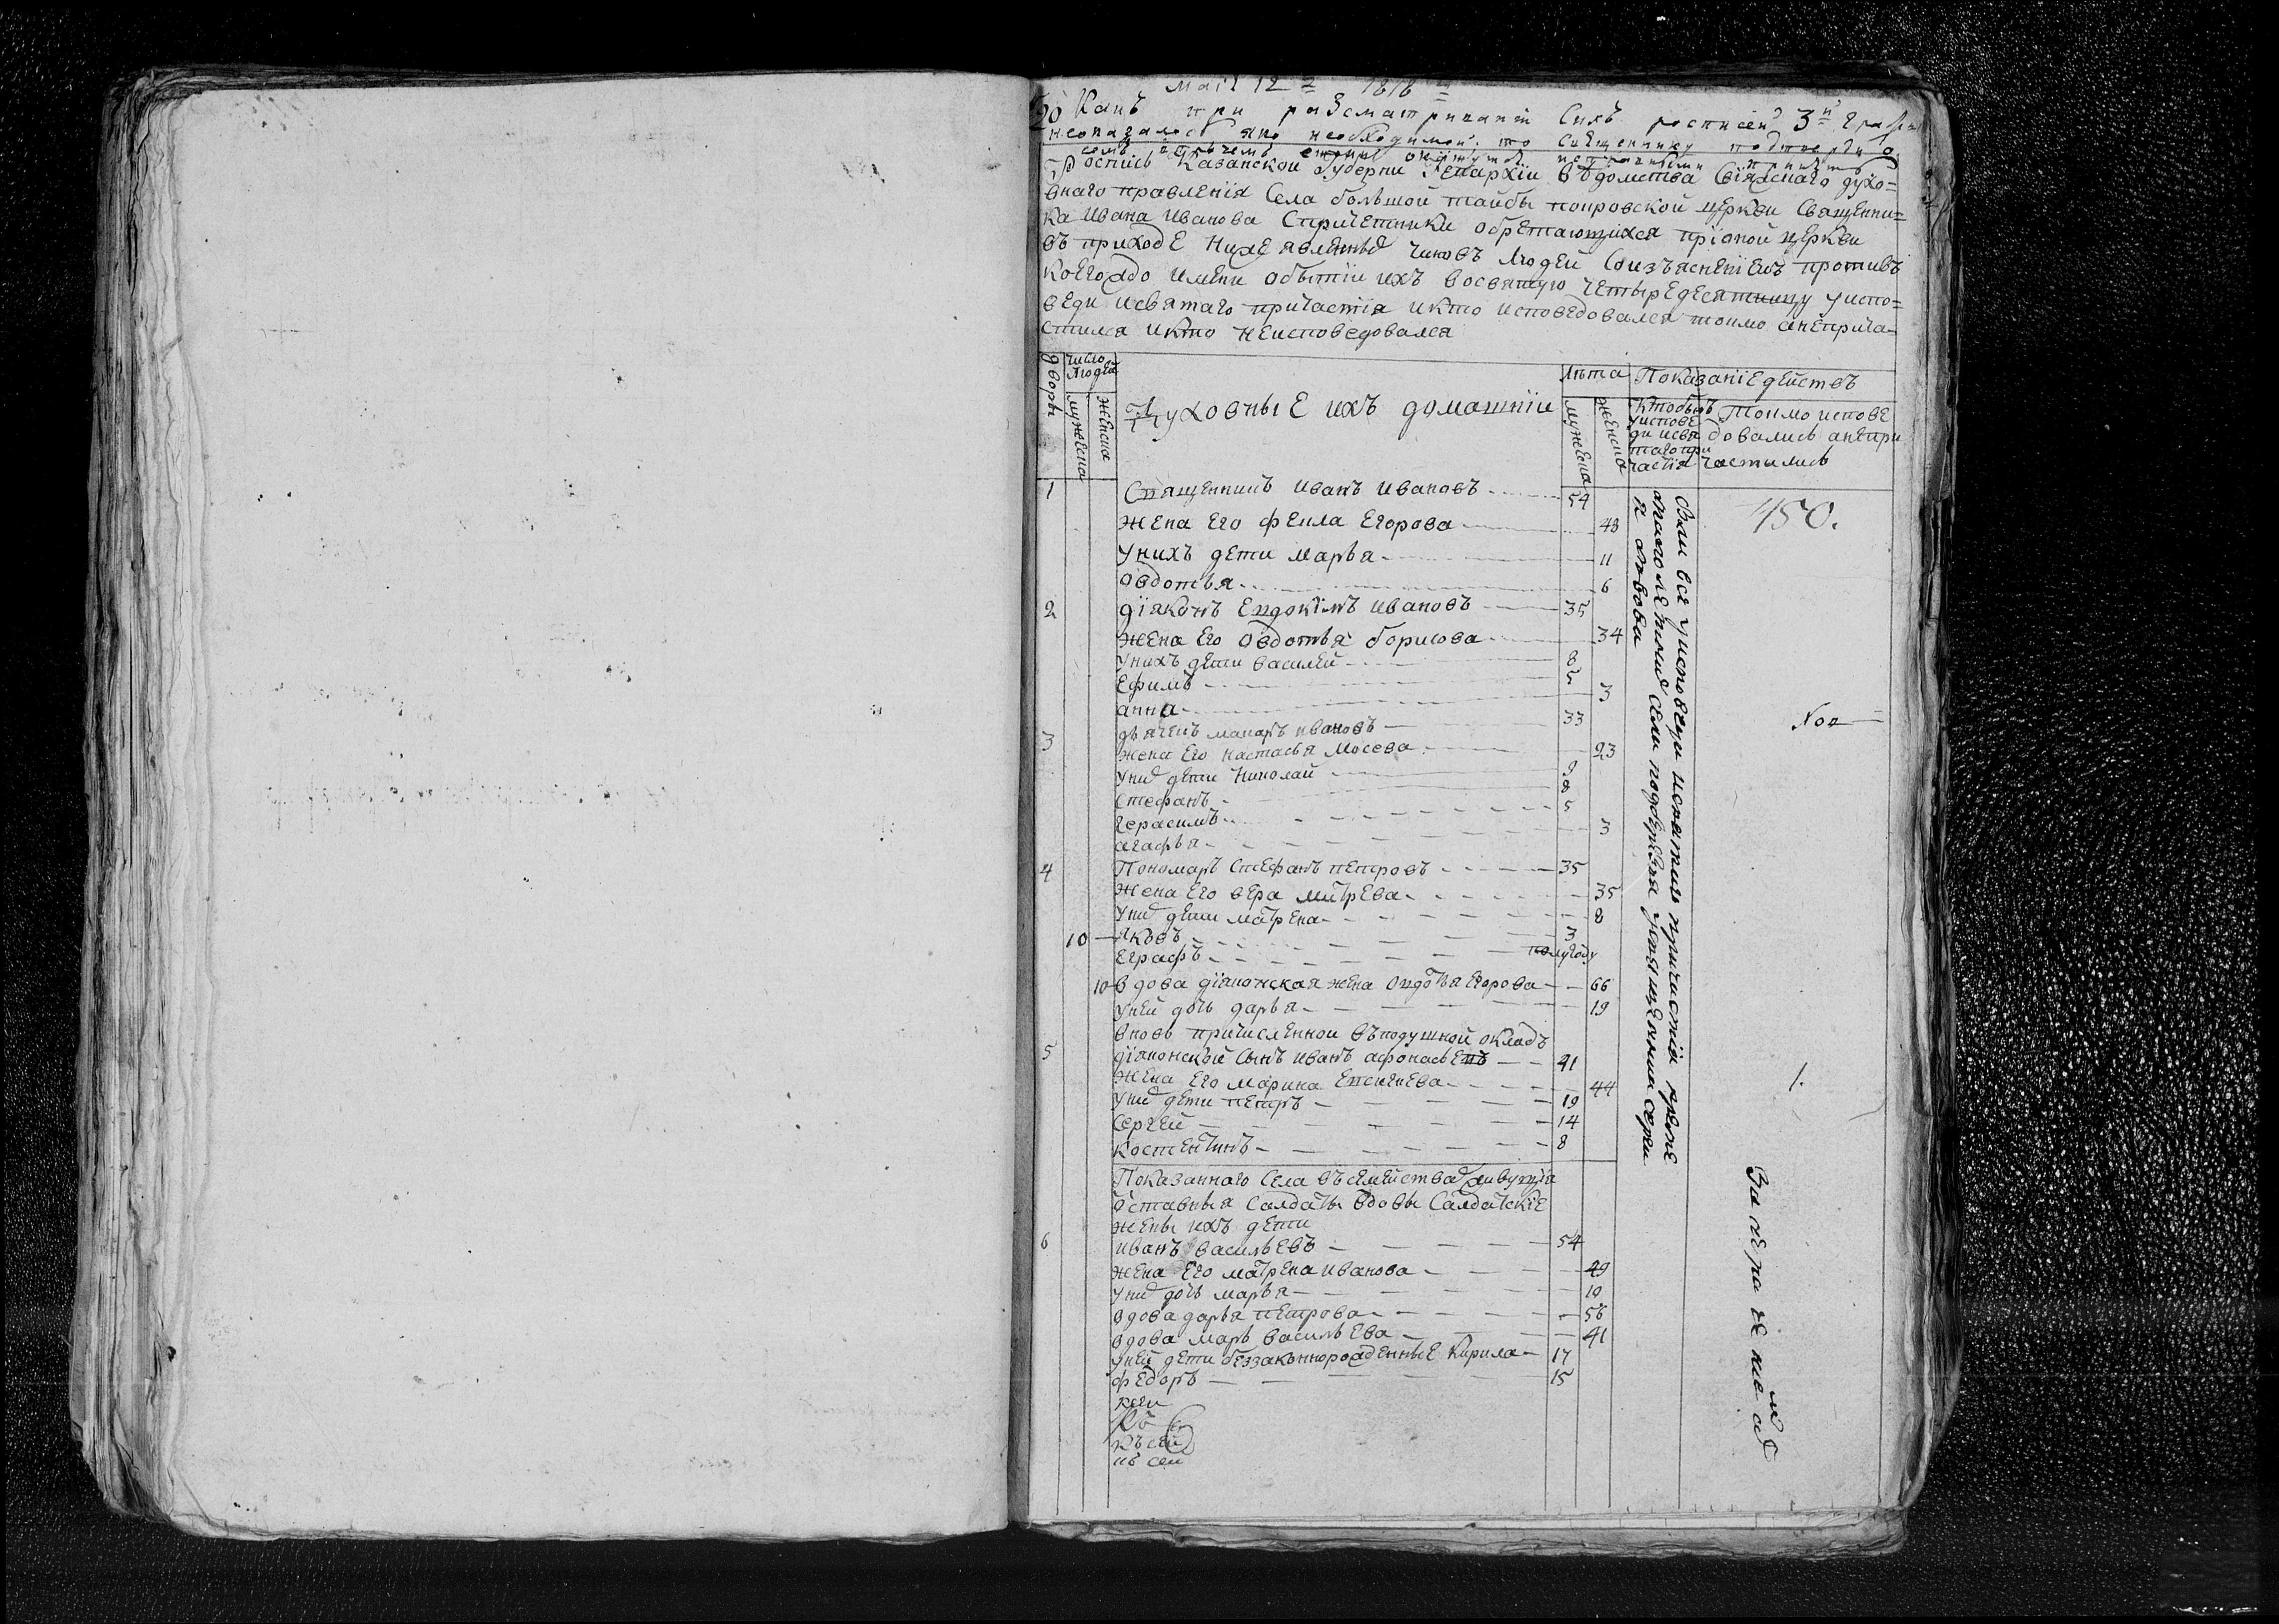 маiя 12 1818
Какъ при разсматриванiи Сихъ росписей 3й Графы
неоказалось яко необходимой: то Священнику подтвердить
Роспись Казанской Губерни и Епархiи вѣдомства Свiяжскаго духо=
внаго правленiя Села большой тайбы покровской церкви Священни=
ка Ивана Иванова Спричетники обретающихся прионой церкви
въ приходе нижеявленныхъ чиновъ людей Соизъяснениемъ противъ
коегождо имени обытiи ихъ Восвятую четыредесятницу уиспо=
веди исвятаго причастiя икто исповедовался токмо анеприча=
стился икто неисповедовался
дворы
число людей
мужеска
женска
Духовные ихъ домашнiи
Лѣта
мужеска
женска
Показанiе действъ
Ктобылъ уисповеди исвятаго причастiя
Токмо исповедовались анепричастились
1 Священникъ иванъ ивановъ 54
жена его фекла Егорова 43
унихъ дети марья 11
овдотья 6
2 дiяконъ Евдокимъ ивановъ 35
жена его овдотья борисова 34
унихъ дети василей 8
Ефимъ
анна 3
3 дьячекъ макаръ ивановъ 33
жена его настасья Мосева 23
унихъ дети николай 9
Стефанъ 8
герасимъ 5
агафья 3
4 Пономарь Стефанъ петровъ 35
жена его вера митрева 35
унихъ дети матрена 8
10 яковъ 3
Еграфъ полугоду
10 вдова дiяконская жена овдотья Егорова 66
уней дочь дарья 19
вновь причисленной въподушной окладъ
5 дiяконской сынъ иванъ афонасьевъ 41
жена его марина 44
унихъ дети петръ 19
Сергей 14
костентинъ 8
Показаннаго Села въсемействахъ живущiя
отставныя Салдаты вдовы Салдатскiе
жены ихъ дети
6 иванъ васильевъ 54
жена его матрена иванова 49
унихъ дочь марья 10
вдова дарья петрова 56
вдова марь васильева 41
уней дети беззаконнорожденные Кирила 17
федоръ 15
къ сей
къ сей
Были все уисповеди исвятыхъ причастiя кроме
450.
1.